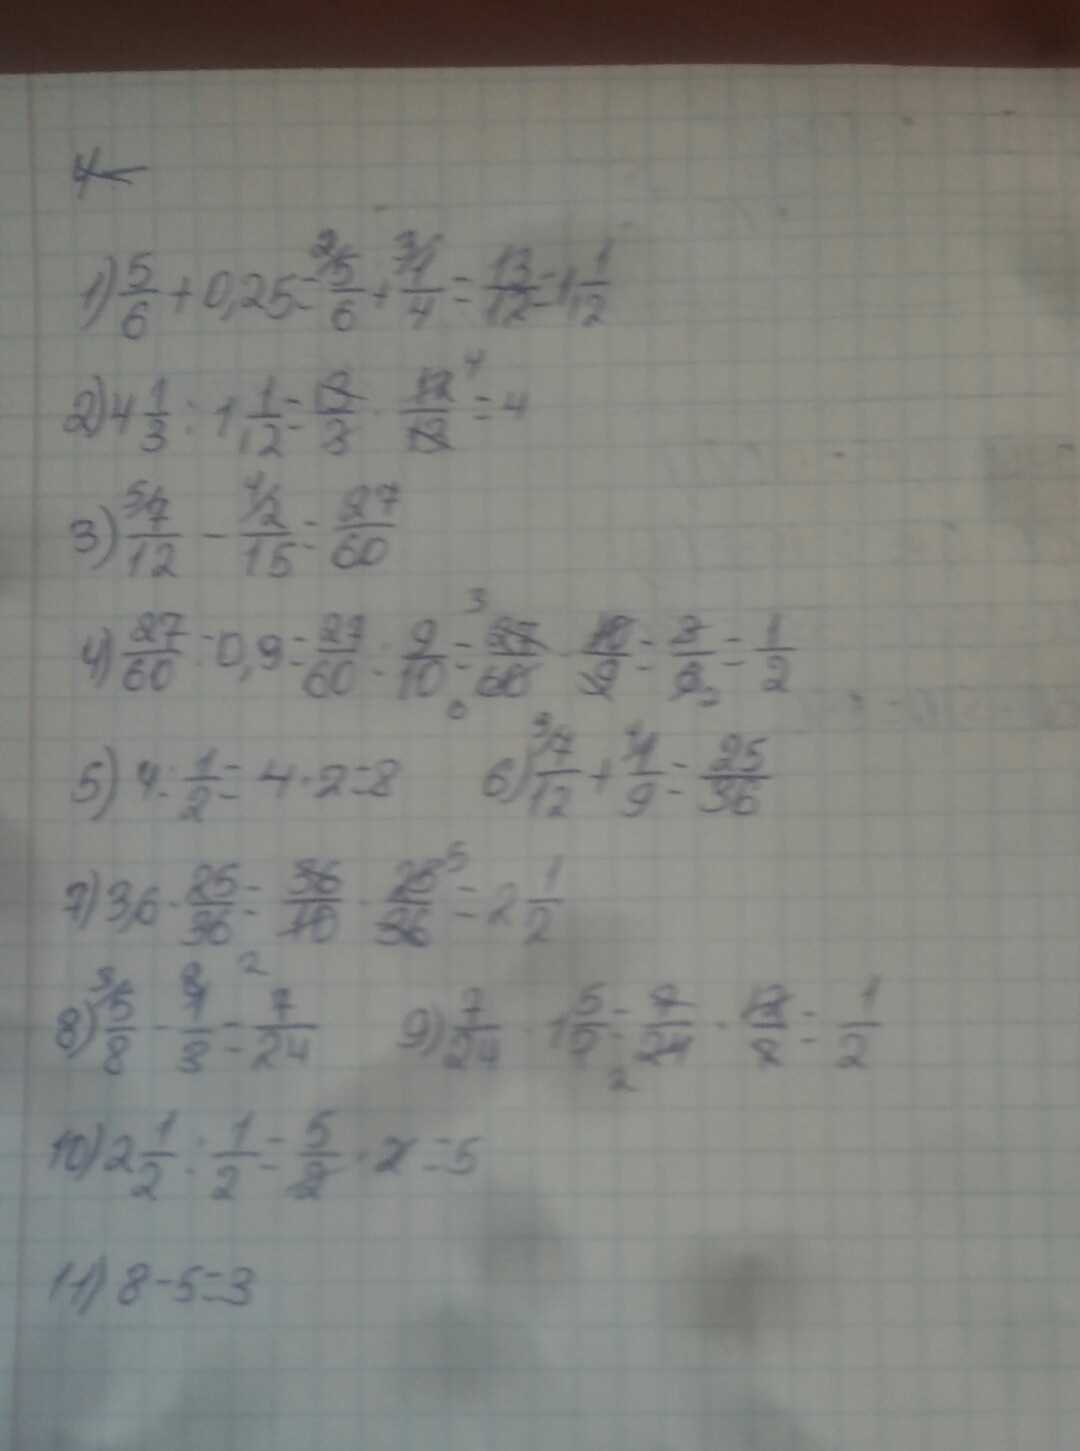 1) 5/6 + 0,25 = 5/6 + 1/4 = 13/12 = 1 1/12
2) 4 1/3 : 1 1/12 = 13/3 · 12/13 = 4
3) 7/12 - 2/15 = 27/60
4) 27/60 : 0,9 = 27/60 : 9/10 = 27/60 · 10/9 = 3/6 = 1/2
5) 4 : 1/2 = 4 · 2 = 8 6) 7/12 + 1/9 = 25/36
7) 3,6 · 25/36 = 36/10 · 25/36 = 2 1/2
8) 5/8 - 1/3 = 7/24 9) 7/24 · 1 5/7 = 7/24 · 12/7 = 1/2
10) 2 1/2 : 1/2 = 5/2 · 2 = 5
11) 8 - 5 = 3